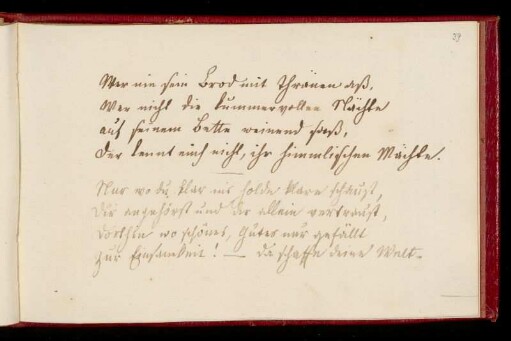 39
Wer nie sein Brod mit Thränen aß,
Wer nicht die kummervollen Nächte
auf seinem Bette weinend saß,
Der kennt euch nicht, ihr himmlischen Mächte.
Nur wo du klar ins holde Klare schaust,
Dir angehörst und dir allein vertraust,
Dorthin wo schönes, Gutes nur gefällt
Zur Einsamkeit! — da schaffe deine Welt.